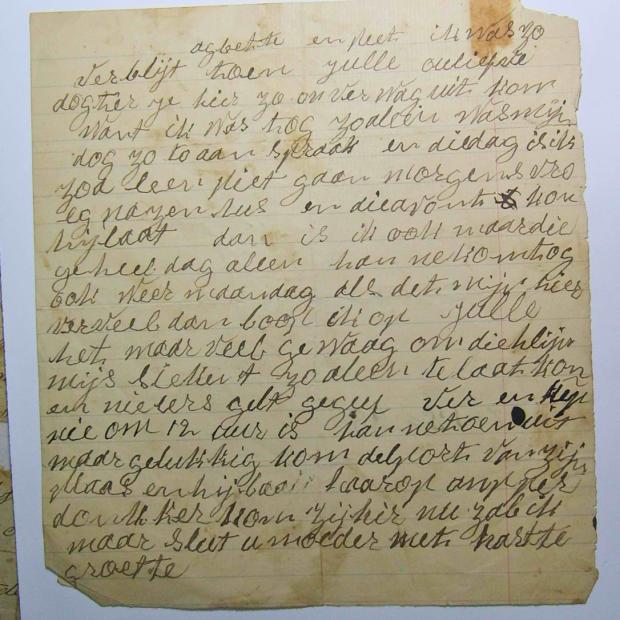 agbette en niet ik was zo
verblijt toen julle ouliefie
dogter je hier zo onverwag uit kom
want ik was tog zo alein was mijn
dog zo to aan spraak en die dag is ik
zoa leen niet gaan morgens vro
eg na zen hus en die avont kon
hij laat dan is ik ook maar die
geheel dag alleen han ne kom tog
ook weer maandag als det mijn hier
verveel dan loop ik op julle
het maar veel gewaag om die klijn
mijs siekent zo aleen te laat kon
en niefers gelt gegeef ver en
nie om 12 uur is han ne toen uit
maar gelukkig kom de port van zijn
plaas en hij daarop amper
donkker kom zij hir nu zal ik
maar slut u moeder met hartte
groette